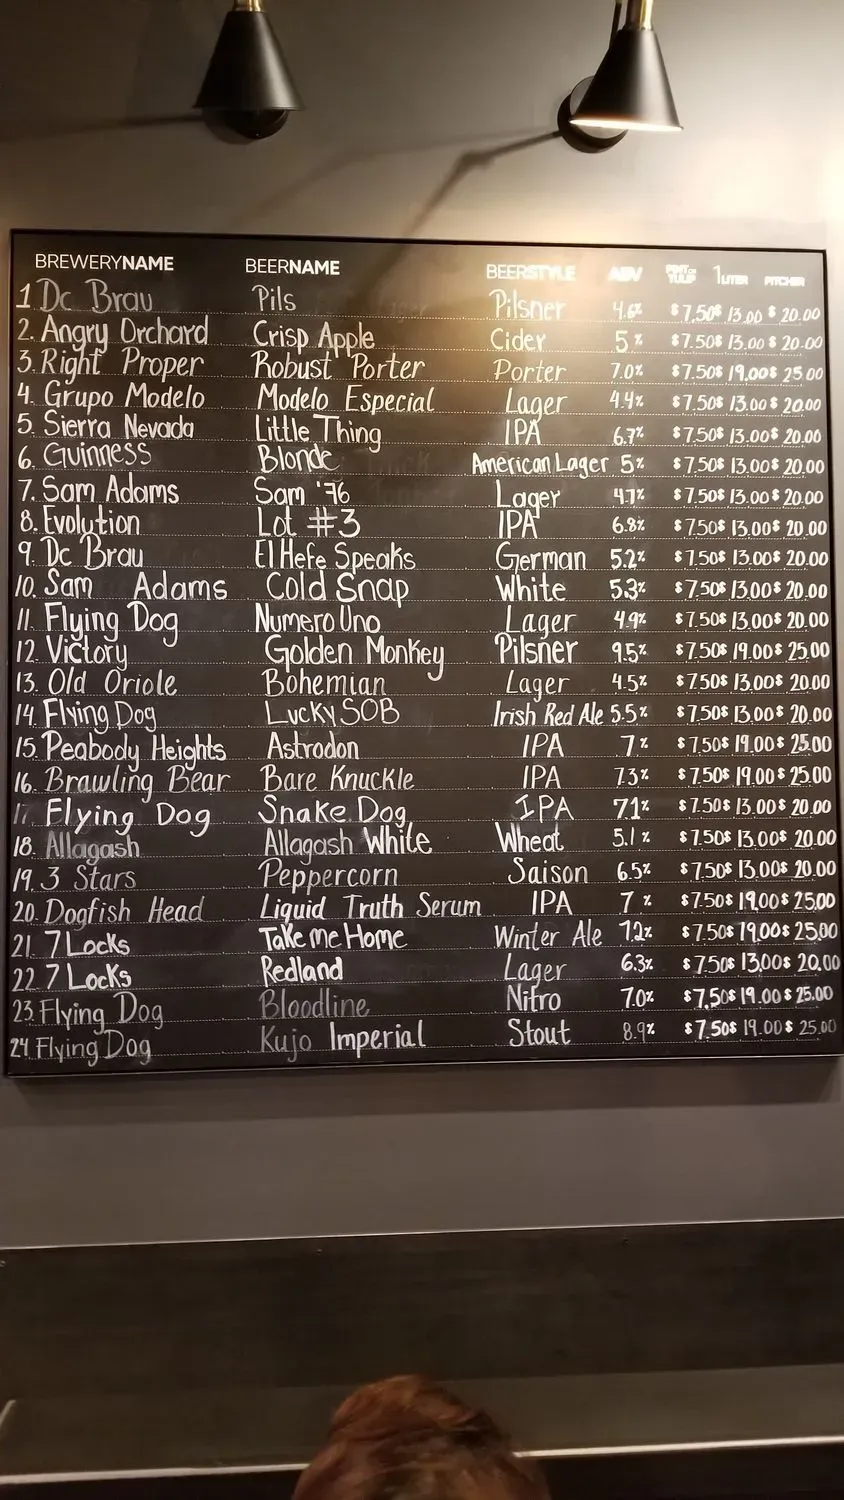 BREWERYNAME BEERNAME BEERSTYLE ABV PINT OR TULIP 1 LITER PITCHER
1 Dc Brau Pils Pilsner 4.6% $7.50 $13.00 $20.00
2. Angry Orchard Crisp Apple Cider 5% $7.50 $13.00 $20.00
3. Right Proper Robust Porter Porter 7.0% $7.50 $19.00 $25.00
4. Grupo Modelo Modelo Especial Lager 4.4% $7.50 $13.00 $20.00
5. Sierra Nevada Little Thing IPA 6.7% $7.50 $13.00 $20.00
6. Guinness Blonde American Lager 5% $7.50 $13.00 $20.00
7. Sam Adams Sam '76 Lager 4.7% $7.50 $13.00 $20.00
8. Evolution Lot #3 IPA 6.8% $7.50 $13.00 $20.00
9. Dc Brau El Hefe Speaks German 5.2% $7.50 $13.00 $20.00
10. Sam Adams Cold Snap White 5.3% $7.50 $13.00 $20.00
11. Flying Dog Numero Uno Lager 4.9% $7.50 $13.00 $20.00
12. Victory Golden Monkey Pilsner 9.5% $7.50 $19.00 $25.00
13. Old Oriole Bohemian Lager 4.5% $7.50 $13.00 $20.00
14. Flying Dog Lucky SOB Irish Red Ale 5.5% $7.50 $13.00 $20.00
15. Peabody Heights Astrodon IPA 7% $7.50 $19.00 $25.00
16. Brawling Bear Bare Knuckle IPA 7.3% $7.50 $19.00 $25.00
17. Flying Dog Snake Dog IPA 7.1% $7.50 $13.00 $20.00
18. Allagash Allagash White Wheat 5.1% $7.50 $13.00 $20.00
19. 3 Stars Peppercorn Saison 6.5% $7.50 $13.00 $20.00
20. Dogfish Head Liquid Truth Serum IPA 7% $7.50 $19.00 $25.00
21. 7 Locks Take me Home Winter Ale 7.2% $7.50 $19.00 $25.00
22. 7 Locks Redland Lager 6.3% $7.50 $13.00 $20.00
23. Flying Dog Bloodline Nitro 7.0% $7.50 $19.00 $25.00
24 Flying Dog Kujo Imperial Stout 8.9% $7.50 $19.00 $25.00